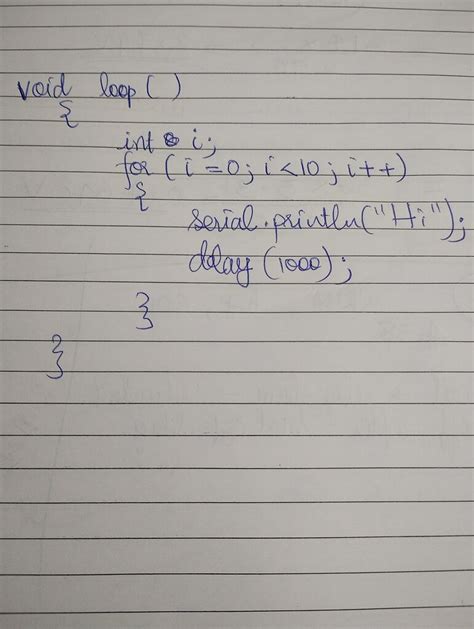 void loop()
{
int i;
for (i=0; i<10; i++)
{
serial.println("Hi");
delay (1000);
}
}